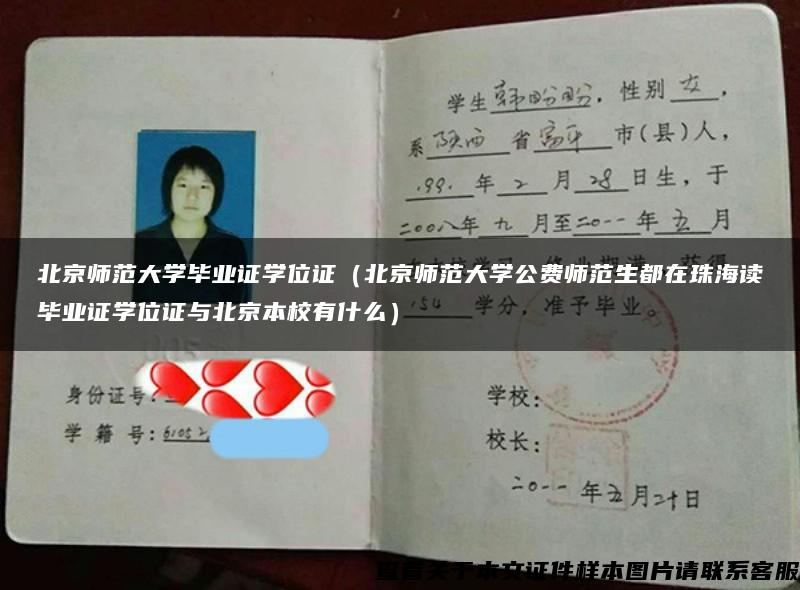 学生韩盼盼，性别女，
系陕西省富平市(县)人，
1991年2月28日生，于
二00八年九月至二0一一年五月
北京师范大学毕业证学位证（北京师范大学公费师范生都在珠海读
毕业证学位证与北京本校有什么）
154学分，准予毕业。
身份证号:
学籍号:61052
学校:
校长:
二0一一年五月二十日
查看关于本文证件样本图片请联系客服